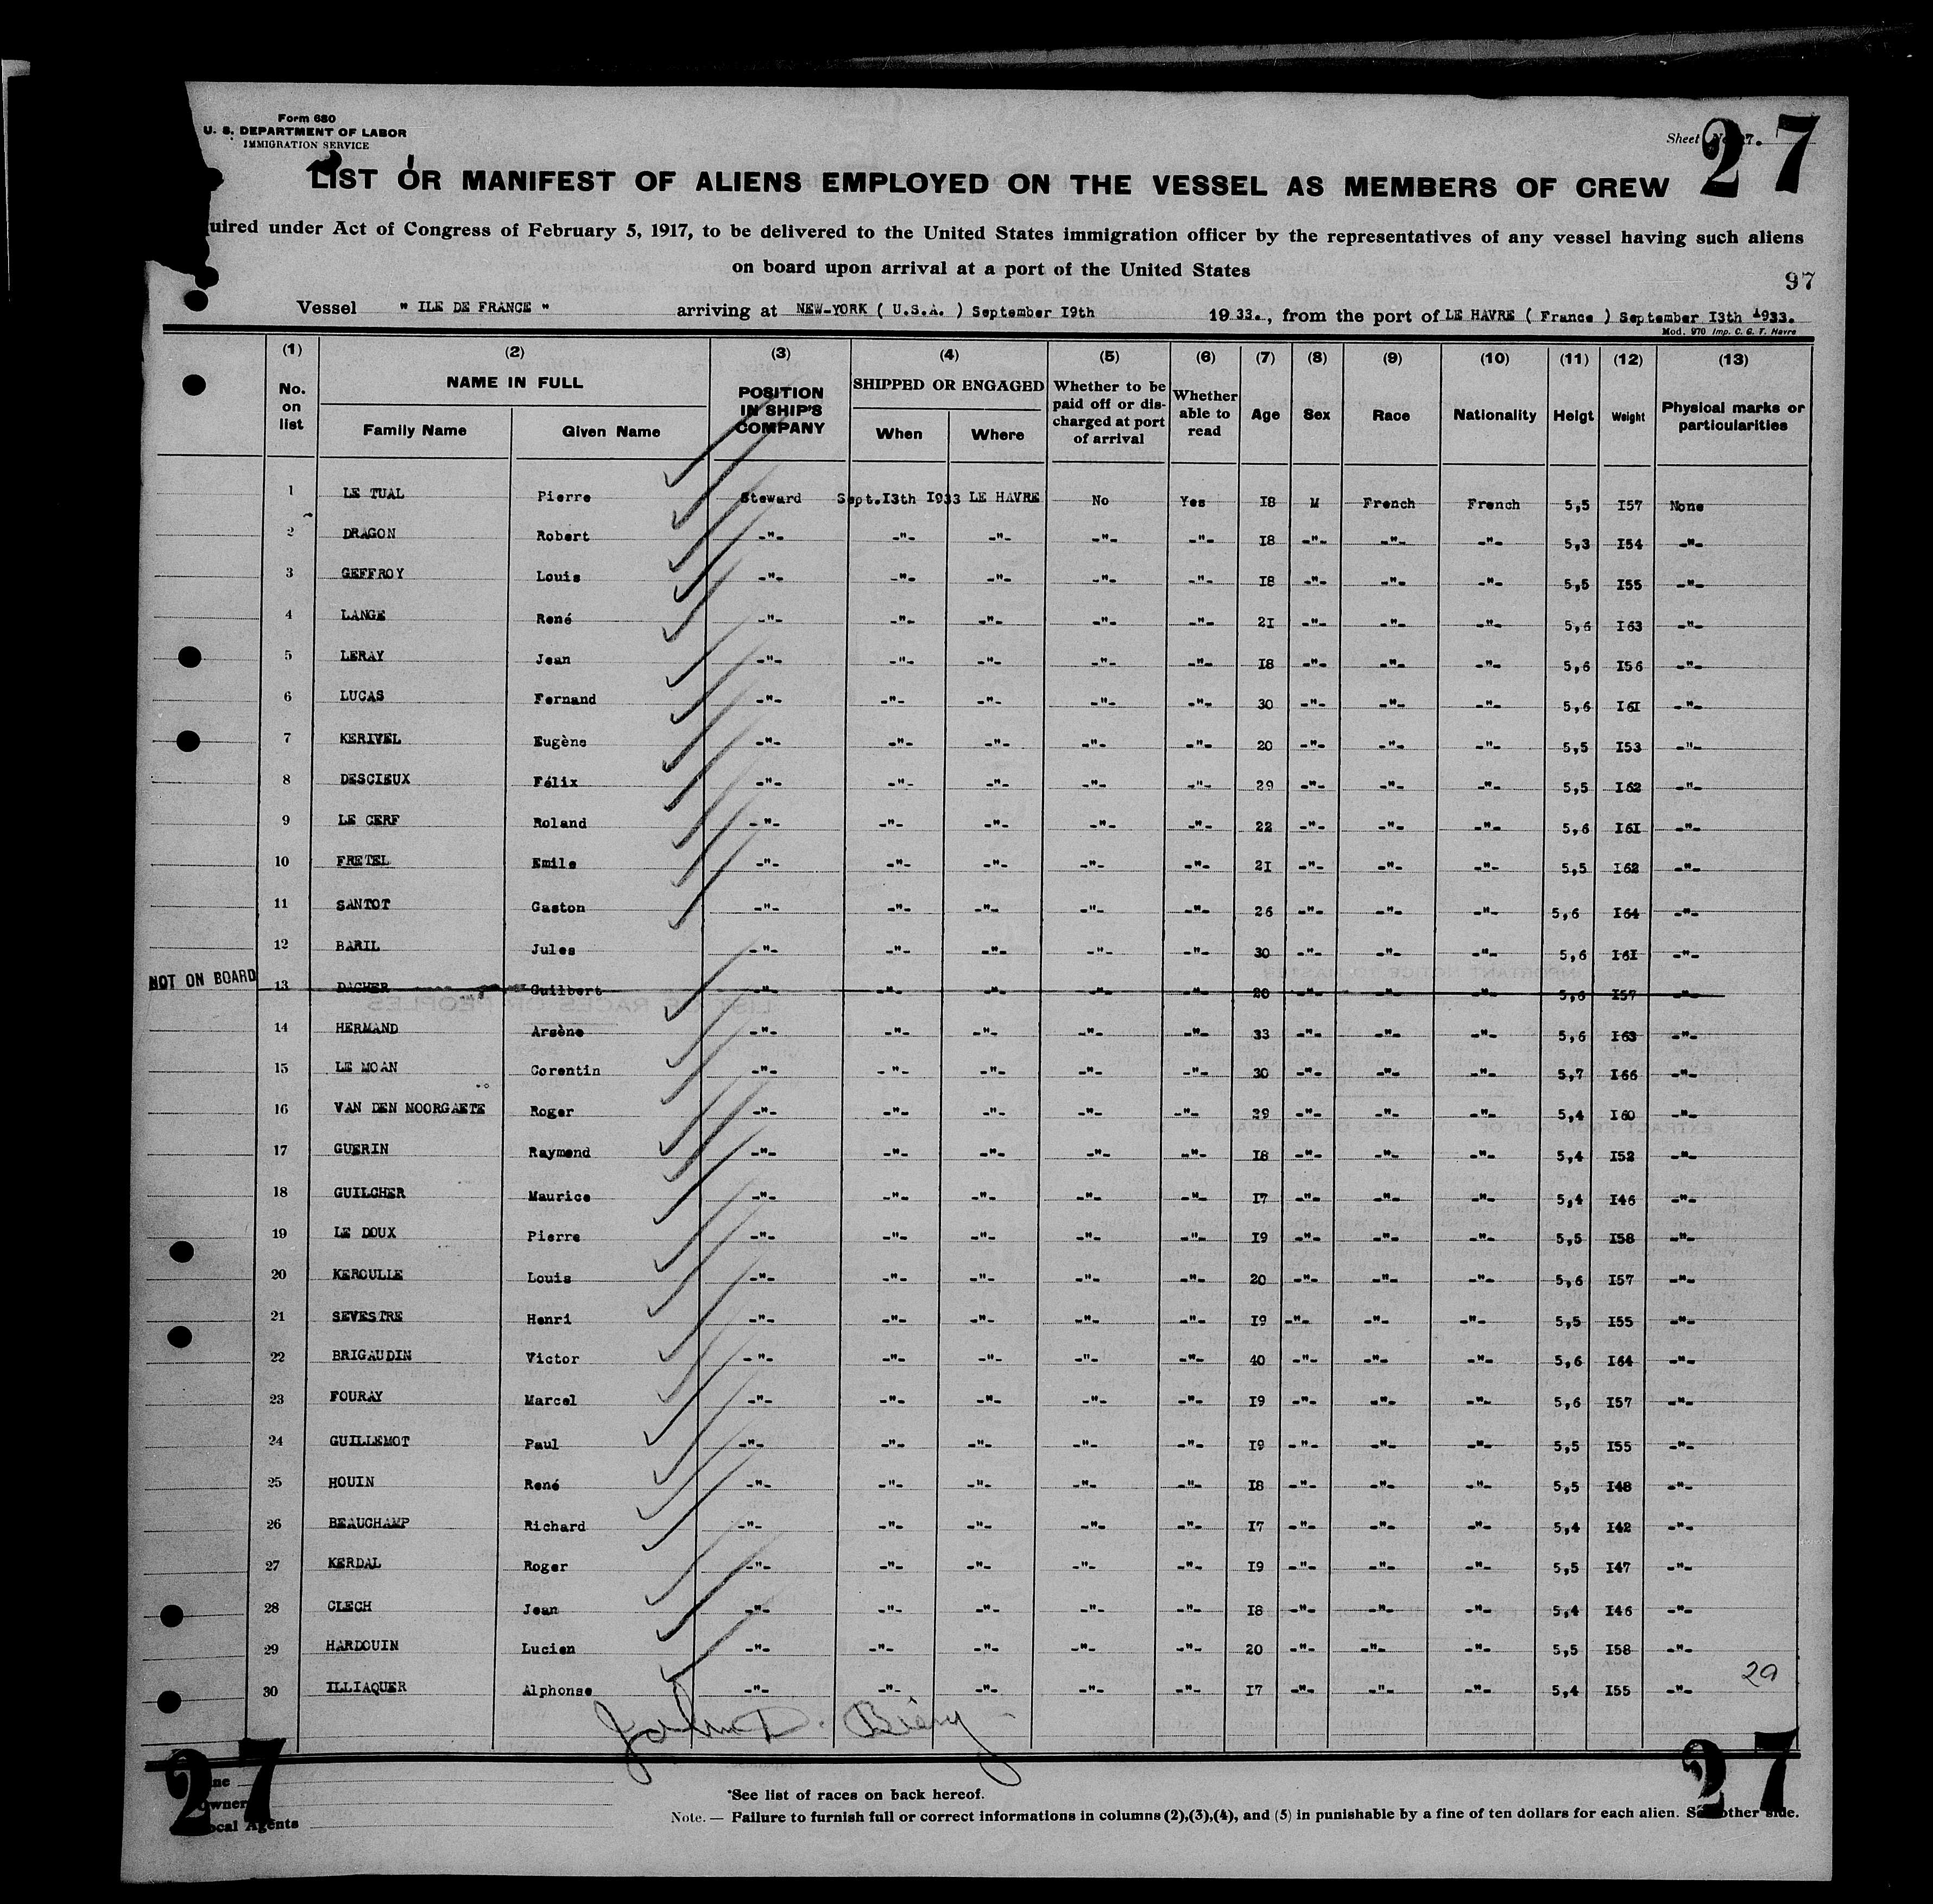 Form 680
U. S. DEPARTMENT OF LABOR
IMMIGRATION SERVICE
Sheet No 27.
27
LIST OR MANIFEST OF ALIENS EMPLOYED ON THE VESSEL AS MEMBERS OF CREW
uired under Act of Congress of February 5, 1917, to be delivered to the United States immigration officer by the representatives of any vessel having such aliens
on board upon arrival at a port of the United States
97
Vessel " ILE DE FRANCE " arriving at NEW-YORK ( U.S.A. ) September I9th 19 33., from the port of LE HAVRE ( France ) September I3th 1933.
Mod. 970 Imp. C. G. T. Havre
(1) (2) (3) (4) (5) (6) (7) (8) (9) (10) (11) (12) (13)
No. on list NAME IN FULL Family Name Given Name POSITION IN SHIP'S COMPANY SHIPPED OR ENGAGED When Where Whether to be paid off or discharged at port of arrival Whether able to read Age Sex Race Nationality Heigt Weight Physical marks or particularities
1 LE TUAL Pierre Steward Sept.I3th I933 LE HAVRE No Yes I8 M French French 5,5 I57 None
2 DRAGON Robert -"- -"- -"- -"- -"- I8 -"- -"- -"- 5,3 I54 -"-
3 GEFFROY Louis -"- -"- -"- -"- -"- I8 -"- -"- -"- 5,5 I55 -"-
4 LANGE René -"- -"- -"- -"- -"- 2I -"- -"- -"- 5,6 I63 -"-
5 LERAY Jean -"- -"- -"- -"- -"- I8 -"- -"- -"- 5,6 I56 -"-
6 LUCAS Fernand -"- -"- -"- -"- -"- 30 -"- -"- -"- 5,6 I6I -"-
7 KERIVEL Eugène -"- -"- -"- -"- -"- 20 -"- -"- -"- 5,5 I53 -"-
8 DESCIEUX Félix -"- -"- -"- -"- -"- 29 -"- -"- -"- 5,5 I62 -"-
9 LE CERF Roland -"- -"- -"- -"- -"- 22 -"- -"- -"- 5,6 I6I -"-
10 FRETEL Emile -"- -"- -"- -"- -"- 2I -"- -"- -"- 5,5 I62 -"-
11 SANTOT Gaston -"- -"- -"- -"- -"- 26 -"- -"- -"- 5,6 I64 -"-
12 BARIL Jules -"- -"- -"- -"- -"- 30 -"- -"- -"- 5,6 I6I -"-
NOT ON BOARD 13 DACHER Guilbert -"- -"- -"- -"- -"- 20 -"- -"- -"- 5,6 I57 -"-
14 HERMAND Arsène -"- -"- -"- -"- -"- 33 -"- -"- -"- 5,6 I63 -"-
15 LE MOAN Corentin -"- -"- -"- -"- -"- 30 -"- -"- -"- 5,7 I66 -"-
16 VAN DEN NOORGAETE Roger -"- -"- -"- -"- -"- 29 -"- -"- -"- 5,4 I60 -"-
17 GUERIN Raymond -"- -"- -"- -"- -"- I8 -"- -"- -"- 5,4 I52 -"-
18 GUILCHER Maurice -"- -"- -"- -"- -"- I7 -"- -"- -"- 5,4 I46 -"-
19 LE DOUX Pierre -"- -"- -"- -"- -"- I9 -"- -"- -"- 5,5 I58 -"-
20 KEROULLE Louis -"- -"- -"- -"- -"- 20 -"- -"- -"- 5,6 I57 -"-
21 SEVESTRE Henri -"- -"- -"- -"- -"- I9 -"- -"- -"- 5,5 I55 -"-
22 BRIGAUDIN Victor -"- -"- -"- -"- -"- 40 -"- -"- -"- 5,6 I64 -"-
23 FOURAY Marcel -"- -"- -"- -"- -"- I9 -"- -"- -"- 5,6 I57 -"-
24 GUILLEMOT Paul -"- -"- -"- -"- -"- I9 -"- -"- -"- 5,5 I55 -"-
25 HOUIN René -"- -"- -"- -"- -"- I8 -"- -"- -"- 5,5 I48 -"-
26 BEAUCHAMP Richard -"- -"- -"- -"- -"- I7 -"- -"- -"- 5,4 I42 -"-
27 KERDAL Roger -"- -"- -"- -"- -"- I9 -"- -"- -"- 5,5 I47 -"-
28 CLECH Jean -"- -"- -"- -"- -"- I8 -"- -"- -"- 5,4 I46 -"-
29 HARDOUIN Lucien -"- -"- -"- -"- -"- 20 -"- -"- -"- 5,5 I58 -"-
30 ILLIAQUER Alphonse -"- -"- -"- -"- -"- I7 -"- -"- -"- 5,4 I55 -"-
29
John D. Biery
27 27
ine
Owner
ocal Agents
*See list of races on back hereof.
Note. — Failure to furnish full or correct informations in columns (2),(3),(4), and (5) in punishable by a fine of ten dollars for each alien. See other side.